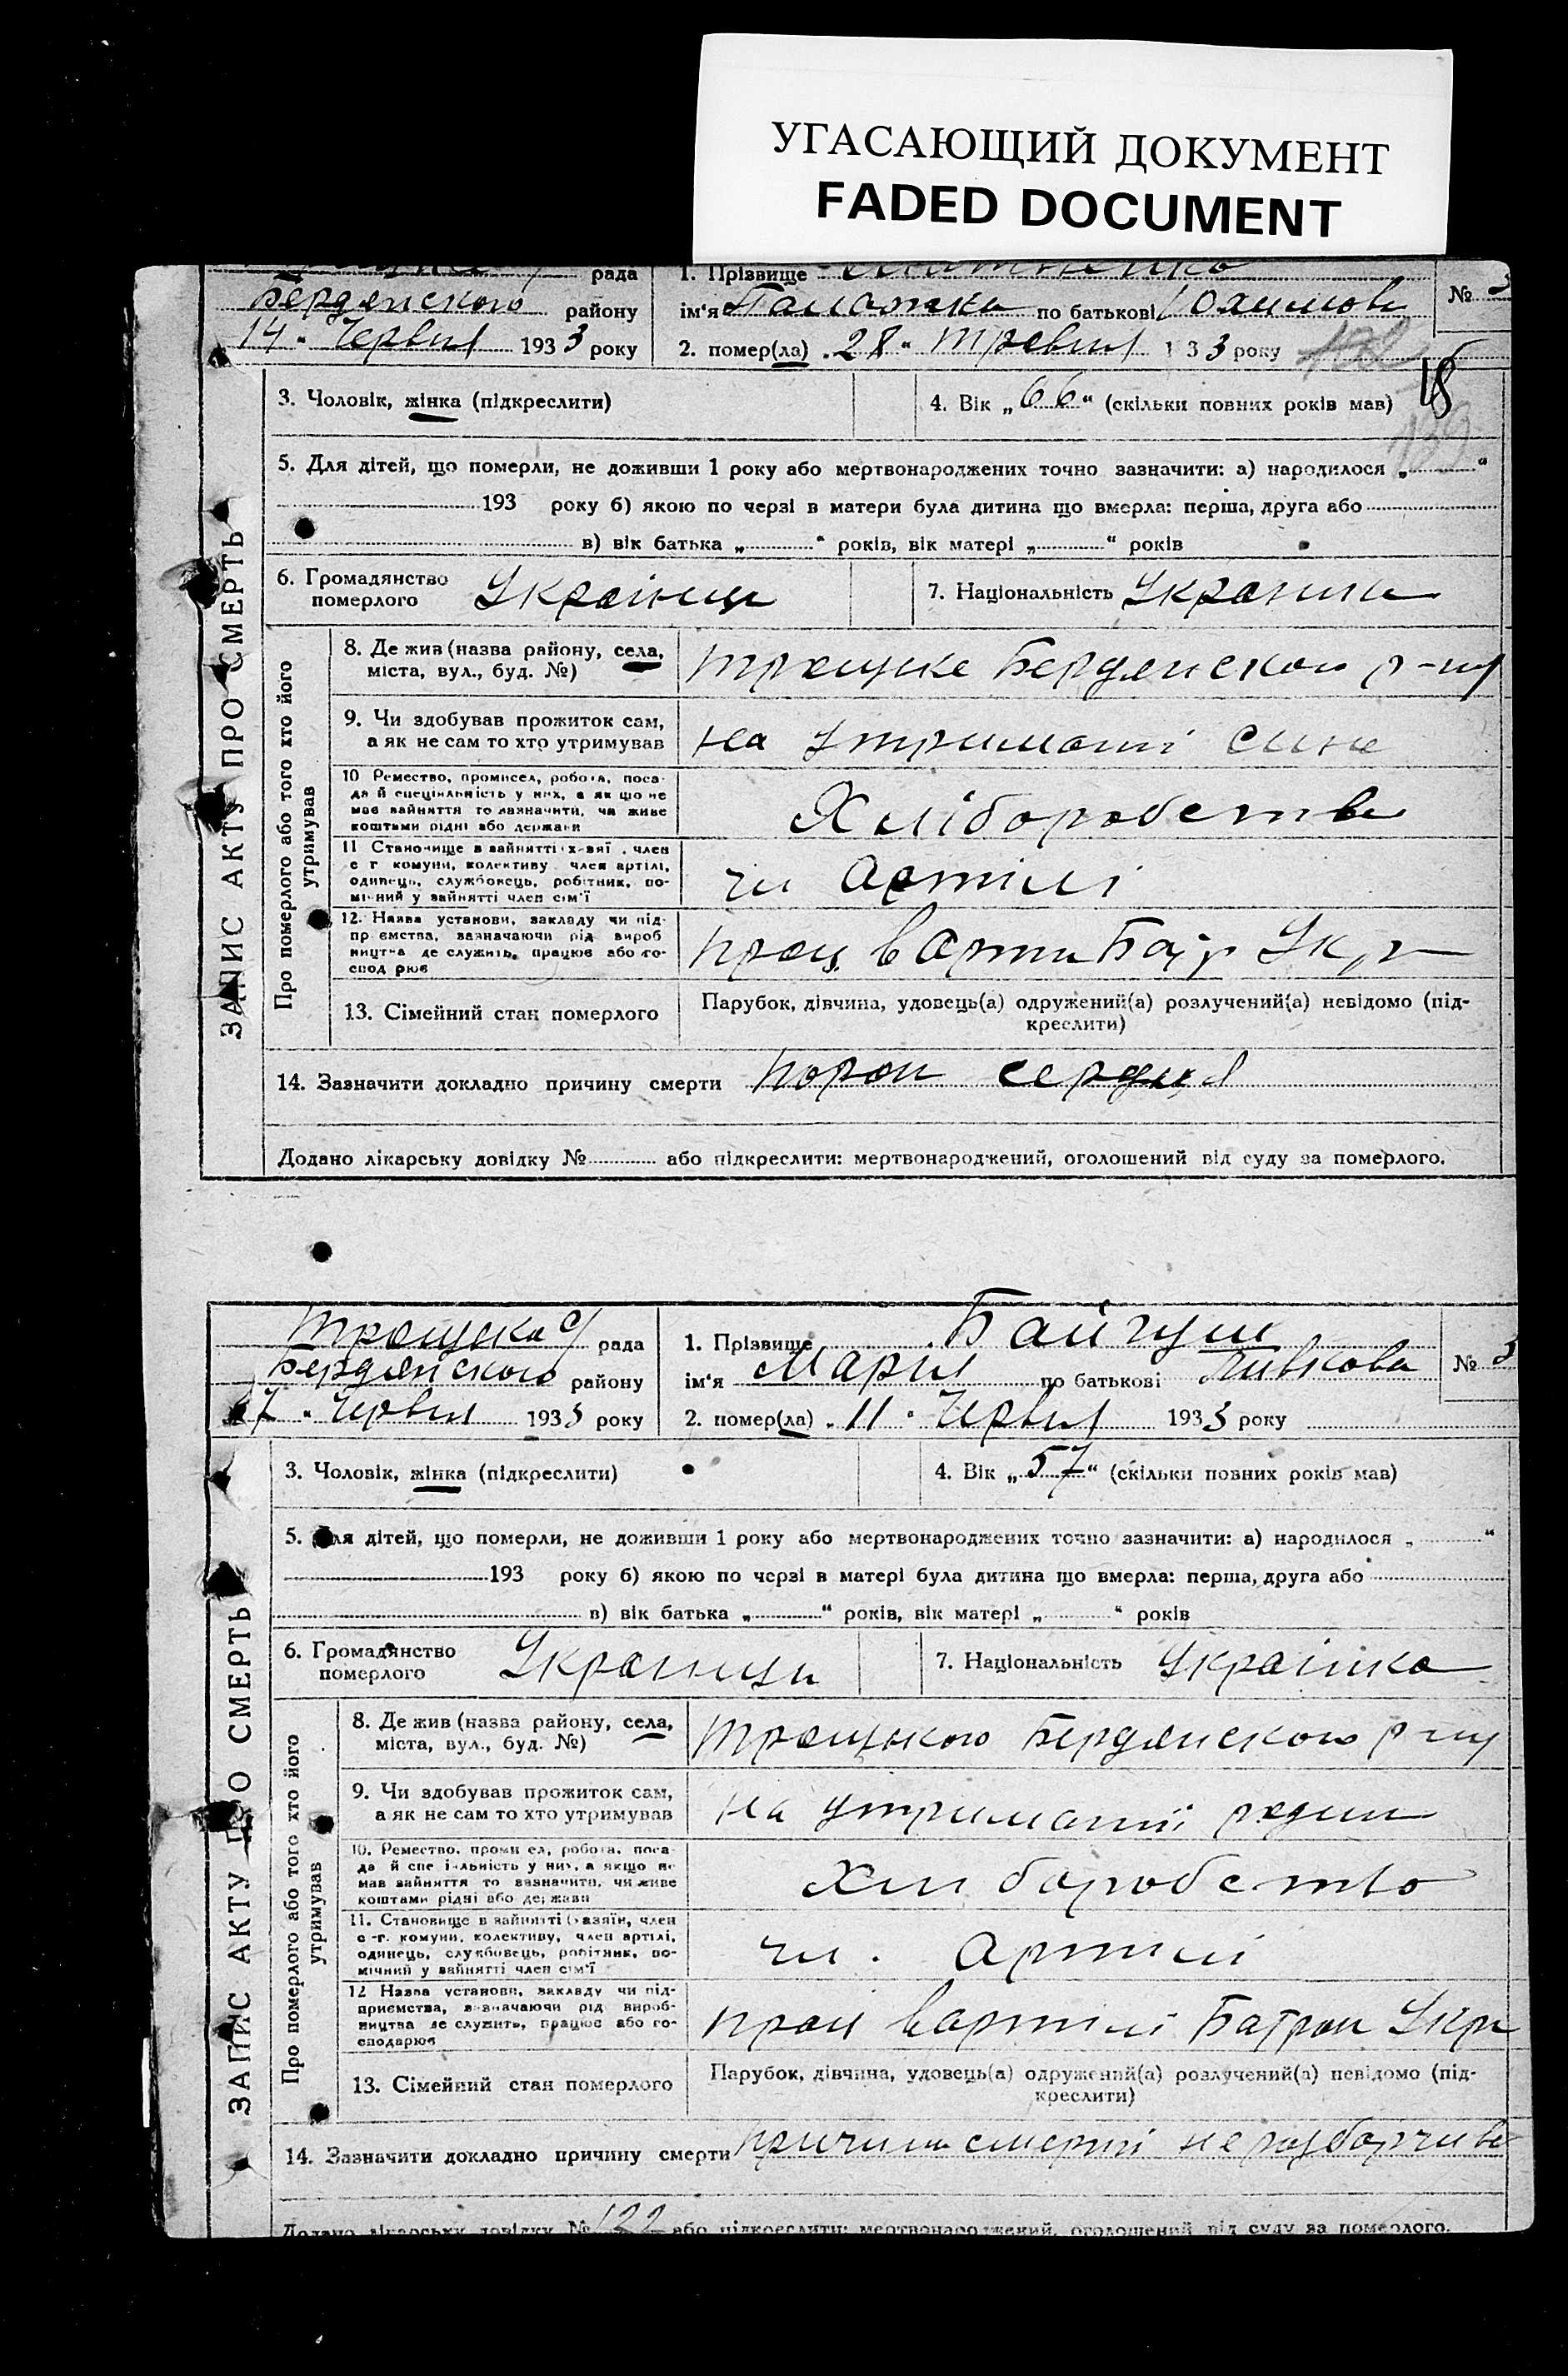 УГАСАЮЩИЙ ДОКУМЕНТ
FADED DOCUMENT
рада 1. Прізвище
Бердянского району ім'я Палажка по батькові Юхимовн №
14 " Червня 1933 року 2. помер(ла) „ 28 " Травня 1933 року
18
139
3. Чоловік, жінка (підкреслити) 4. Вік „ 66 “ (скільки повних років мав)
5. Для дітей, що померли, не доживши 1 року або мертвонароджених точно зазначити: а) народилося „ “
193 року б) якою по черзі в матери була дитина що вмерла: перша, друга або
в) вік батька „ “ років, вік матері „ “ років
6. Громадянство
померлого
7. Національність
ЗАПИС АКТУ ПРО СМЕРТЬ
Про померлого або того хто його
утримував
8. Де жив (назва району, села,
міста, вул., буд. №)
Троцке Бердянского р-ну
9. Чи здобував прожиток сам,
а як не сам то хто утримував
на утриманні сина
10 Ремество, промисел, робота, поса-
да й спеціяльність у них, а як що не
має зайняття то зазначити, чи живе
коштами рідні або держави
Хліборобства
11 Становище в зайнятті (х-зяї , член
с г комуни, колективу член артілі,
одинець, службовець, робітник, по-
мічний у зайнятті член сім'ї
чл Артілі
12. Назва установи, закладу чи під-
приємства, зазначаючи рід вироб
ництва де служить, працює або го-
сподарює
прац в Арти
13. Сімейний стан померлого
Парубок, дівчина, удовець(а) одружений(а) розлучений(а) невідомо (під-
креслити)
14. Зазначити докладно причину смерти порок серця
Додано лікарську довідку № або підкреслити: мертвонароджений, оголошений від суду за померлого.
Троцька с/ рада 1. Прізвище Байгуш
Бердянского району ім'я Марія по батькові №
17 " Червня 1933 року 2. помер(ла) „ 11 " Червня 1933 року
3. Чоловік, жінка (підкреслити) 4. Вік „ 57 “ (скільки повних років мав)
5. Для дітей, що померли, не доживши 1 року або мертвонароджених точно зазначити: а) народилося „ “
193 року б) якою по черзі в матері була дитина що вмерла: перша, друга або
в) вік батька „ “ років, вік матері „ “ років
6. Громадянство
померлого
7. Національність Українка
ЗАПИС АКТУ ПРО СМЕРТЬ
Про померлого або того хто його
утримував
8. Де жив (назва району, села,
міста, вул., буд. №)
Троцького Бердянского р-ну
9. Чи здобував прожиток сам,
а як не сам то хто утримував
на утриманні родин
10. Ремество, промисел, робота, поса-
да й спеціяльність у них, а якщо не
мав зайняття то зазначити, чи живе
коштами рідні або держави
Хлиборобство
11. Становище в зайнятті (хазяїн, член
с-г. комуни, колективу, член артілі,
одинець, службовець, робітник, по-
мічний у зайнятті член сім'ї
чл. Артилі
12 Назва установи, закладу чи під-
приємства, зазначаючи рід вироб-
ництва де служить, працює або го-
сподарює
прац в артилі Батрак Укр
13. Сімейний стан померлого
Парубок, дівчина, удовець(а) одружений(а) розлучений(а) невідомо (під-
креслити)
14. Зазначити докладно причину смерти причина смерті неразборчива
Додано лікарську довідку № 122 або підкреслити: мертвонароджений, оголошений від суду за померлого.